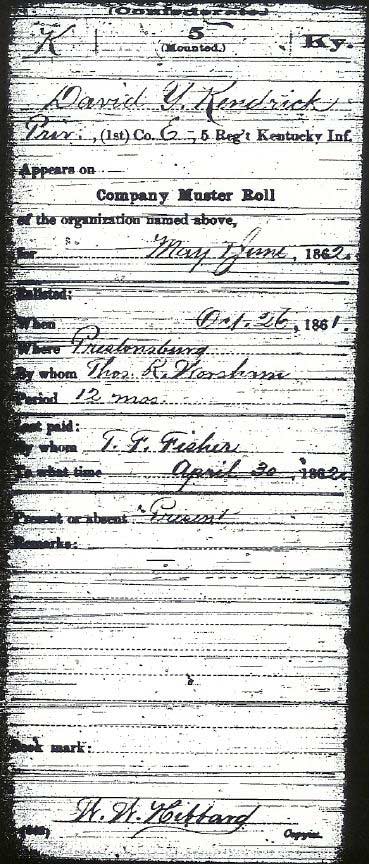 (Confederate.)
K 5 Ky.
(Mounted.)
David Y. Kendrick
Priv., (1st) Co. E, 5 Reg't Kentucky Inf.
Appears on
Company Muster Roll
of the organization named above,
for May & June, 1862.
Enlisted:
When Oct. 26, 1861.
Where Prestonsburg
By whom Thos. R. Worsham
Period 12 mos.
Last paid:
By whom T. F. Fisher
To what time April 30, 1862.
Present or absent Present
Remarks:
Book mark:
W. W. Hibbard
Copyist.